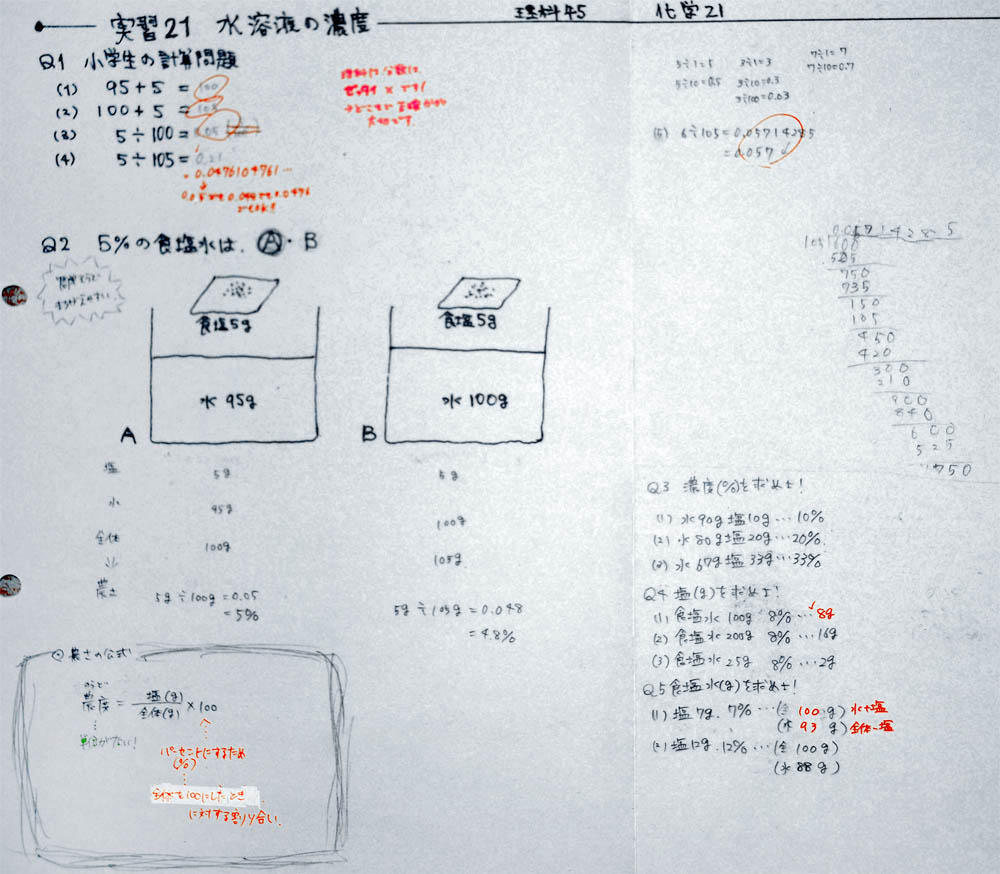 実習21 水溶液の濃度
理科45 化学21
Q1 小学生の計算問題
(1) 95+5 = 100
(2) 100+5 = 105
(3) 5÷100 = 0.05
(4) 5÷105 = 0.21
= 0.0476104761…
理科は分数は
ゼッタイ×です!
大切です。
5÷1=5 3÷1=3 7÷1=7
5÷10=0.5 3÷10=0.3 7÷10=0.7
3÷100=0.03
(5) 6÷105=0.05714285
=0.057
Q2 5%の食塩水は、A・B
食塩5g
水 95g
A
食塩5g
水 100g
B
塩 5g 5g
水 95g 100g
全体 100g 105g
↓
濃さ 5g÷100g=0.05 5g÷105g=0.048
=5% =4.8%
◎濃さの公式
のうど
濃度 = 塩(g)/全体(g) ×100
単位がない!
パーセントにするため
(%)
全体を100にしたとき
に対する割り合い。
0.05714285
105
600
525
750
735
150
105
450
420
300
210
900
840
600
525
750
Q3 濃度(%)を求めよ!
(1) 水90g 塩10g…10%
(2) 水80g 塩20g…20%
(3) 水67g 塩33g…33%
Q4 塩(g)を求めよ!
(1) 食塩水 100g 8%…8g
(2) 食塩水 200g 8%…16g
(3) 食塩水 25g 8%…2g
Q5 食塩水(g)を求めよ!
(1) 塩7g、7%…(全 100g) 水+塩
(水 93g) 全体-塩
(2) 塩12g、12%…(全 100g)
(水 88g)